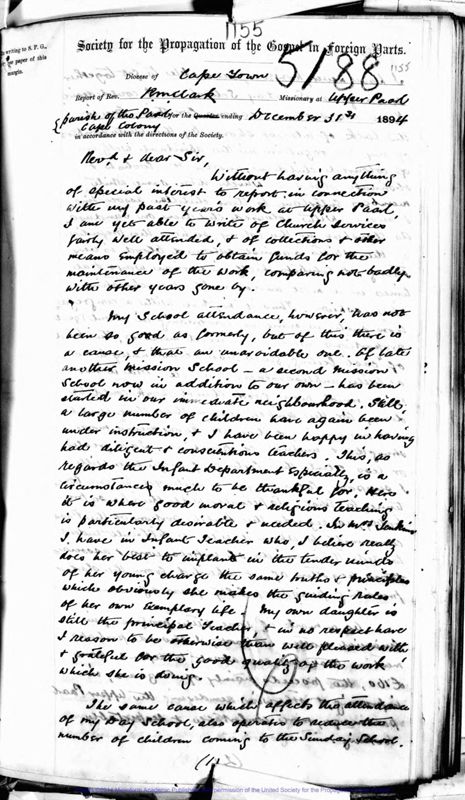 1155
Society for the Propagation of the Gospel in Foreign Parts.
5188
1155
in writing to S. P. G.,
paper of this
margin.
Diocese of Cape Town
Report of Rev. Missionary at Upper Paarl
Parish of the Paarl for the Quarter ending December 31st 1894
Cape Colony
in accordance with the directions of the Society.
Revd. & dear Sir,
Without having anything
of special interest to report in connection
with my past year's work at Upper Paarl,
I am yet able to write of Church Services
fairly well attended, & of collections & other
means employed to obtain funds for the
maintenance of the work, comparing not badly
with other years gone by.
My School attendance, however, has not
been so good as formerly, but of this there is
a cause, & that an unavoidable one. Of late
another Mission School - a second Mission
School now in addition to our own - has been
started in our immediate neighbourhood. Still,
a large number of children have again been
under instruction, & I have been happy in having
had diligent & conscientious teachers. This, as
regards the Infant Department especially, is a
circumstance much to be thankful for. Here
it is where good moral & religious teaching
is particularly desirable & needed. In Mrs Jenkins
I have an Infant Teacher who, I believe really
does her best to implant in the tender minds
of her young charge the same truths & principles
which obviously she makes the guiding rules
of her own exemplary life. My own daughter is
still the principal Teacher & in no respect have
I reason to be otherwise than well pleased with
& grateful for the good quality of the work
which she is doing.
The same cause which affects the attendance
of my Day School, also operates to reduce the
number of children coming to the Sunday School.
(1)